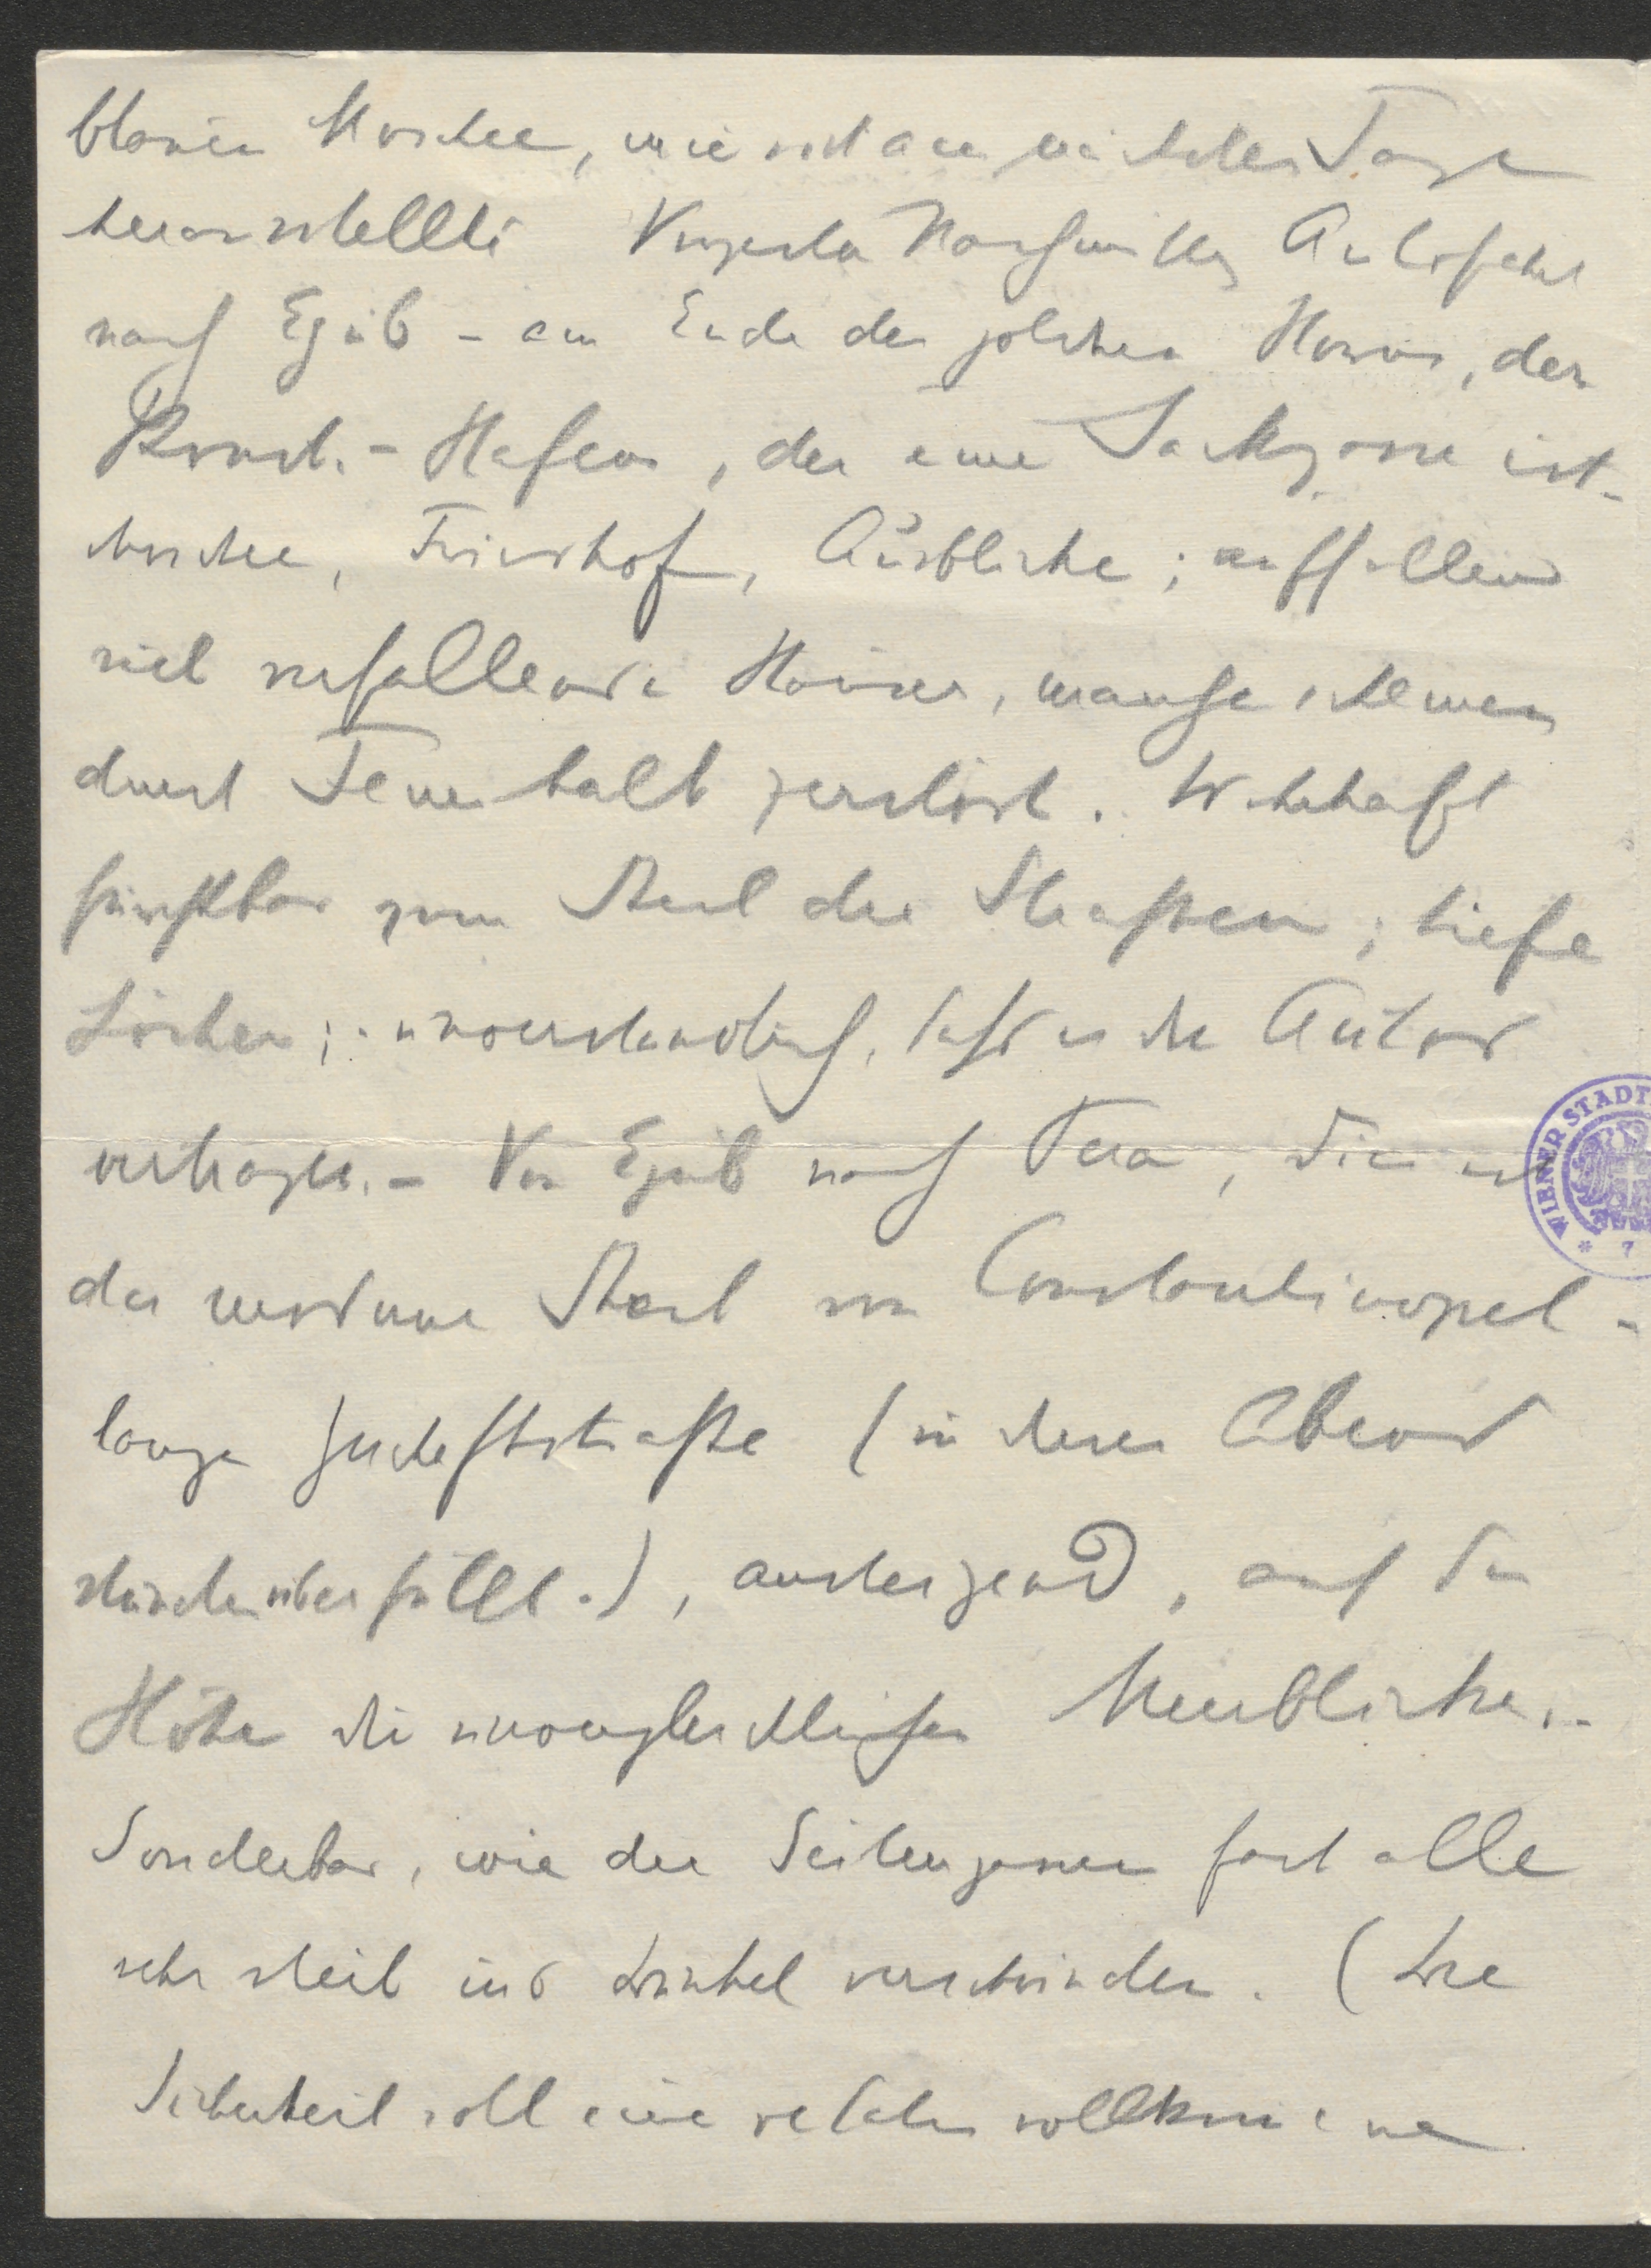 blauen Moschee, wie sich am nächsten Tage
herausstellte. Vorgestern Nachmittag Autofahrt
nach Ejub – am Ende des goldnen Horns, des
Const.-Hafens, der eine Sackgasse ist –
Moschee, Friedhof, Ausblicke; auffallend
viel verfallende Häuser, manche scheinen
durch Feuer halb zerstört. Wahrhaft
furchtbar zum Theil die Straßen; tiefe
Löcher; unverständlich, dass es die Autos
vertragen. – Von Ejub nach Pera, dies ist
der moderne Theil von Constantinopel –
lange Geschäftsstraße (in der Abend
stunden überfüllt.), ansteigend, auf der
Höhe die unvergleichlichen Meerblicke. –
Sonderbar, wie die Seitengassen fast alle
sehr steil ins Dunkel verschwinden. (Die
Sicherheit soll eine vollkommene
WIENER STADT
* 7